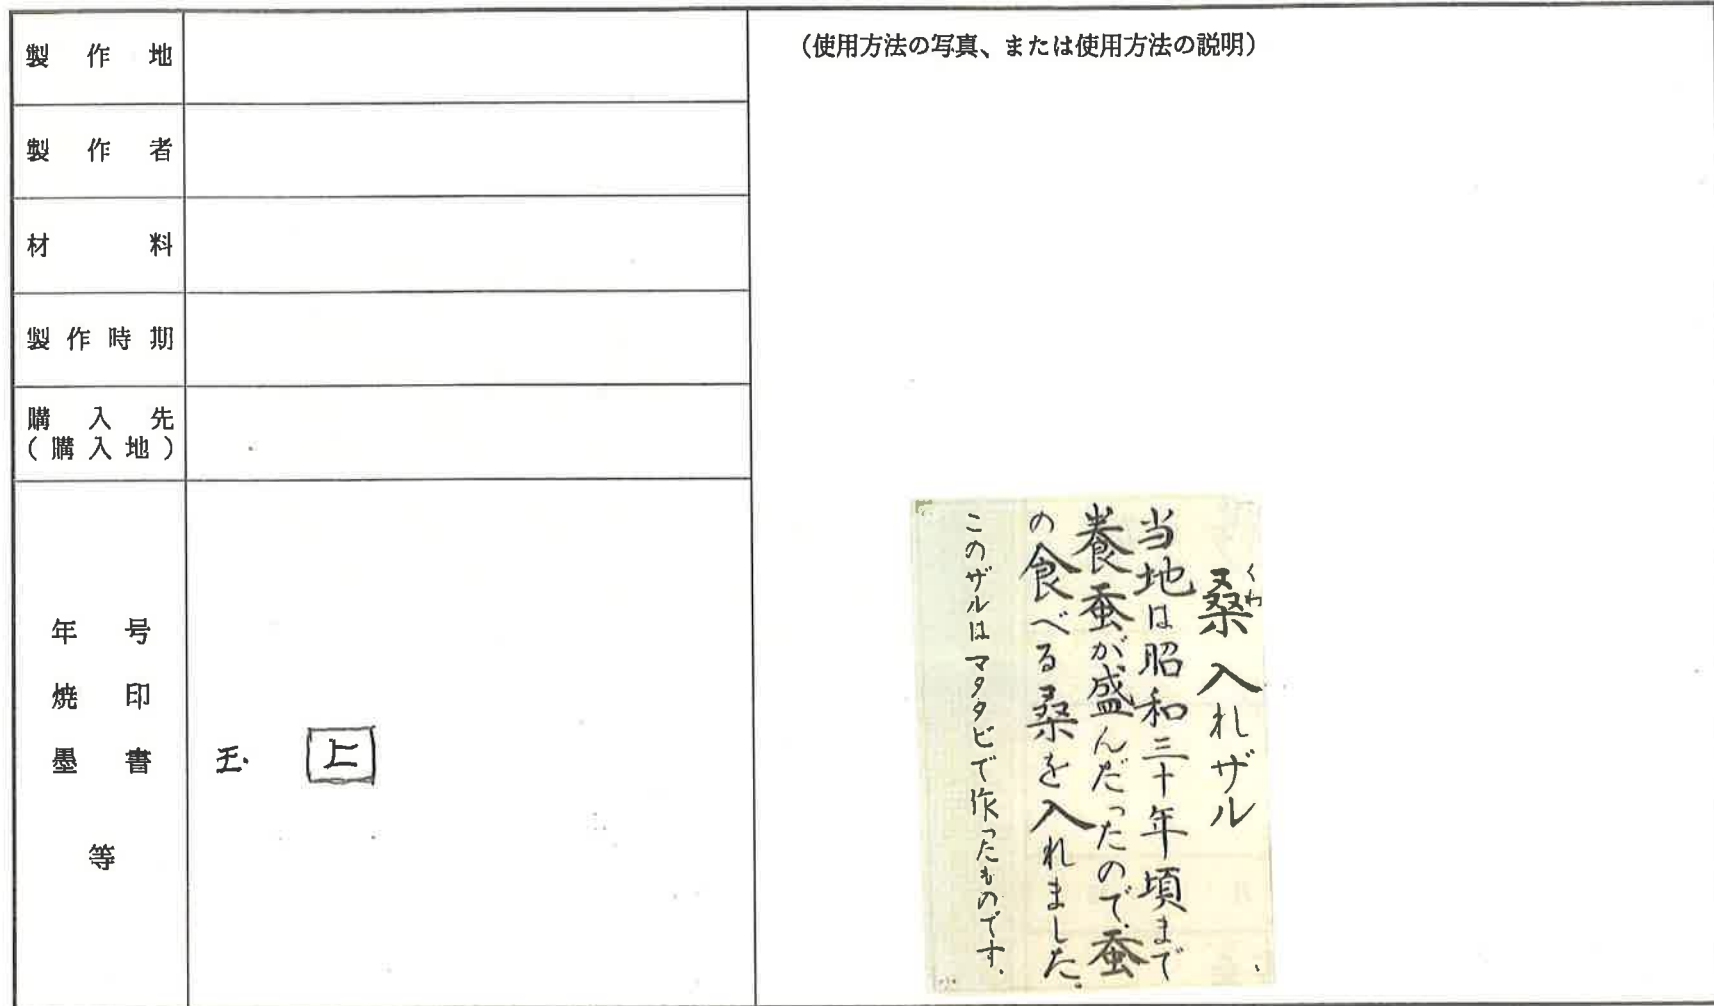 製作地
製作者
材料
製作時期
購入先
(購入地)
年号
焼印
墨書
等
王. 上
(使用方法の写真、または使用方法の説明)
くわ
桑入れザル
当地は昭和三十年頃まで
養蚕が盛んだったので、蚕
の食べる桑を入れました。
このザルはマタタビで作ったものです。